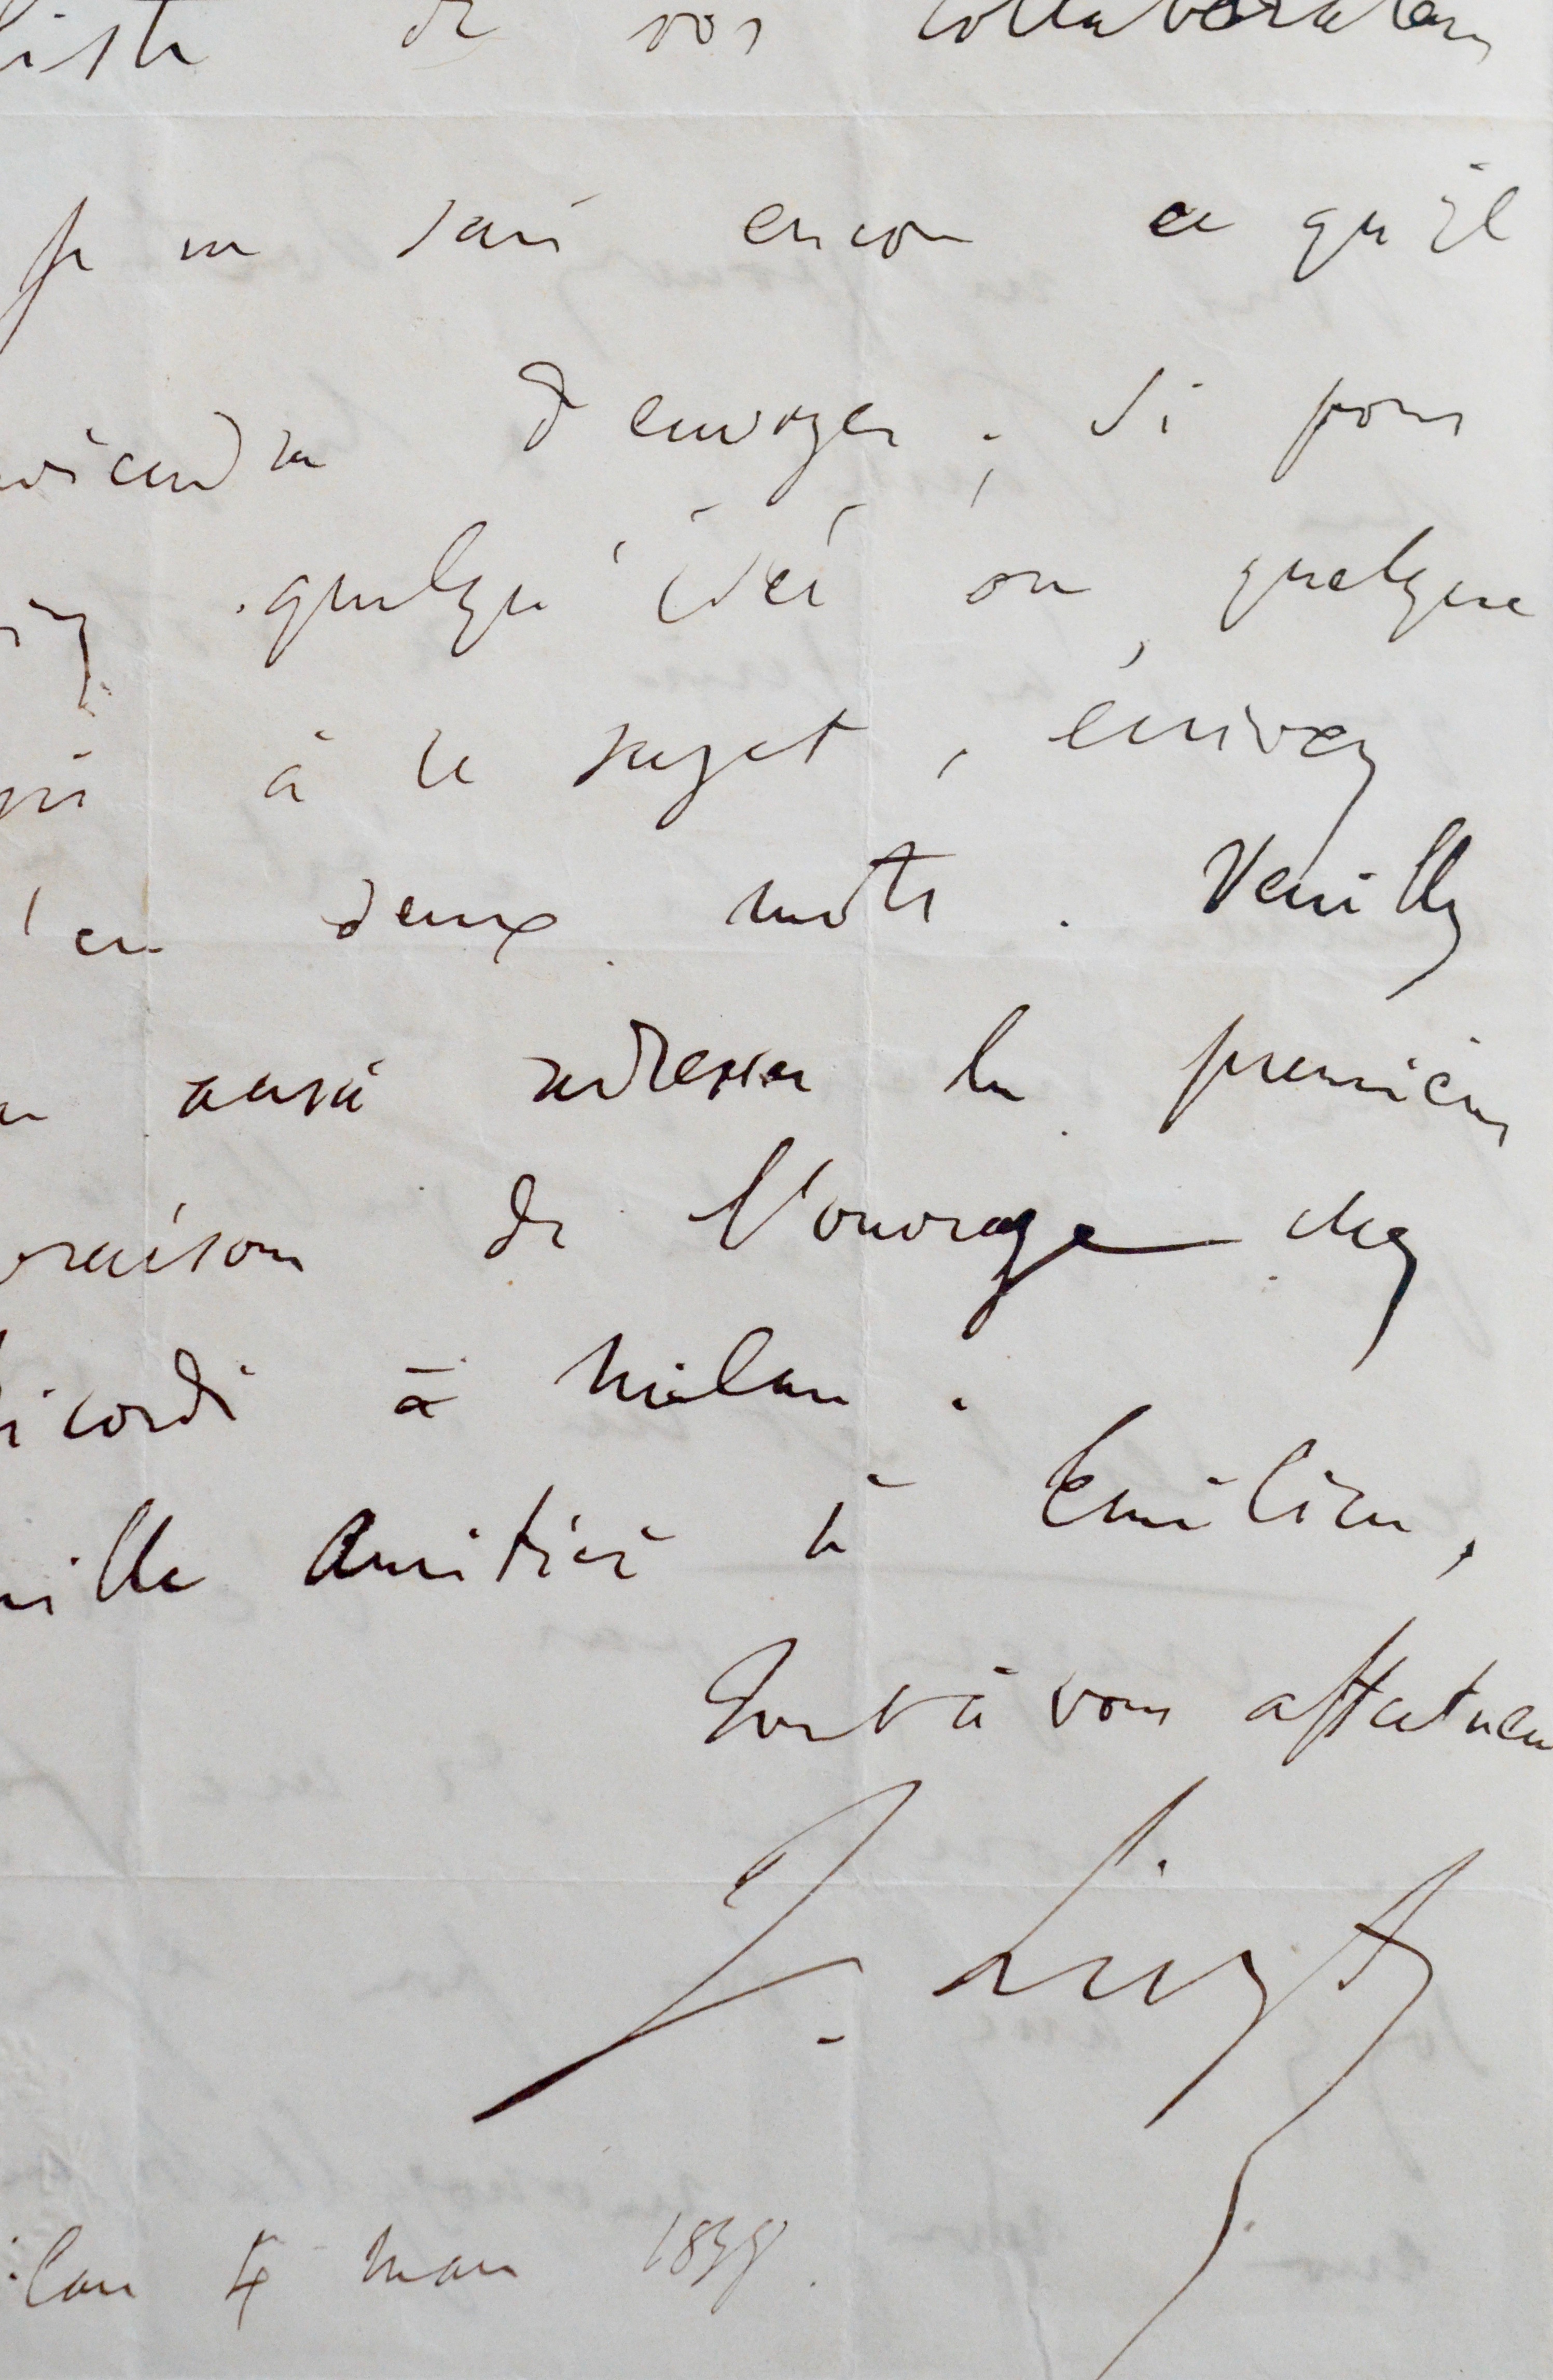 liste de vos collaborateurs
Je ne sais encore ce qu'il
viendra d'envoyer ; si vous
quelqu'idée ou quelque
à ce sujet, écrivez
en deux mots. Veuillez
aussi adresser les premières
vraison de l'ouvrage chez
icordi à Milan.
mille amitiés à Emilien,
Tout à vous affectueu
F. Liszt
ilan 4 mars 1838.